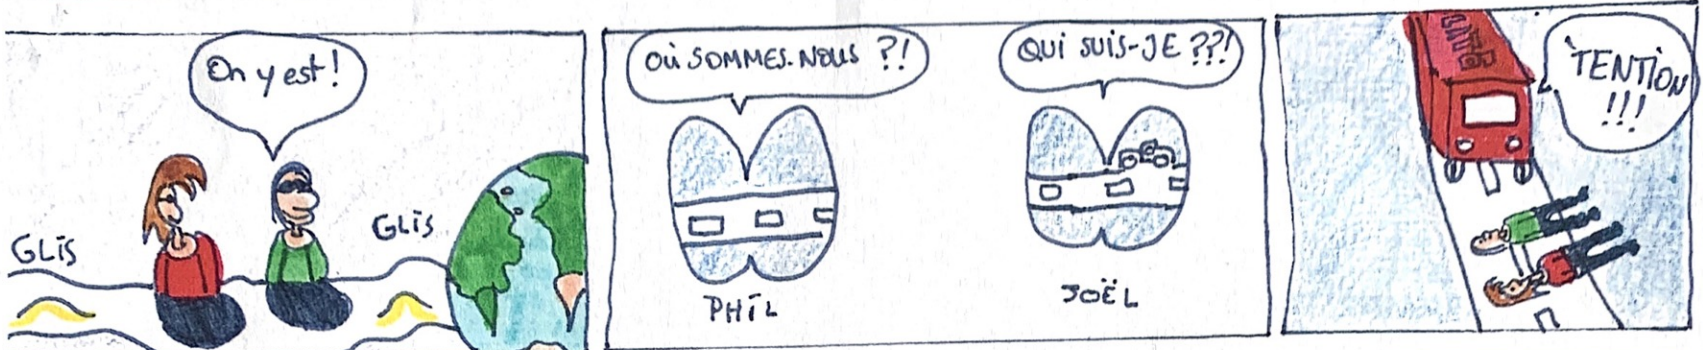 On y est !
GLIS
GLIS
OÙ SOMMES-NOUS ?!
QUI SUIS-JE ??!
PHIL
JOËL
'TENTION
!!!